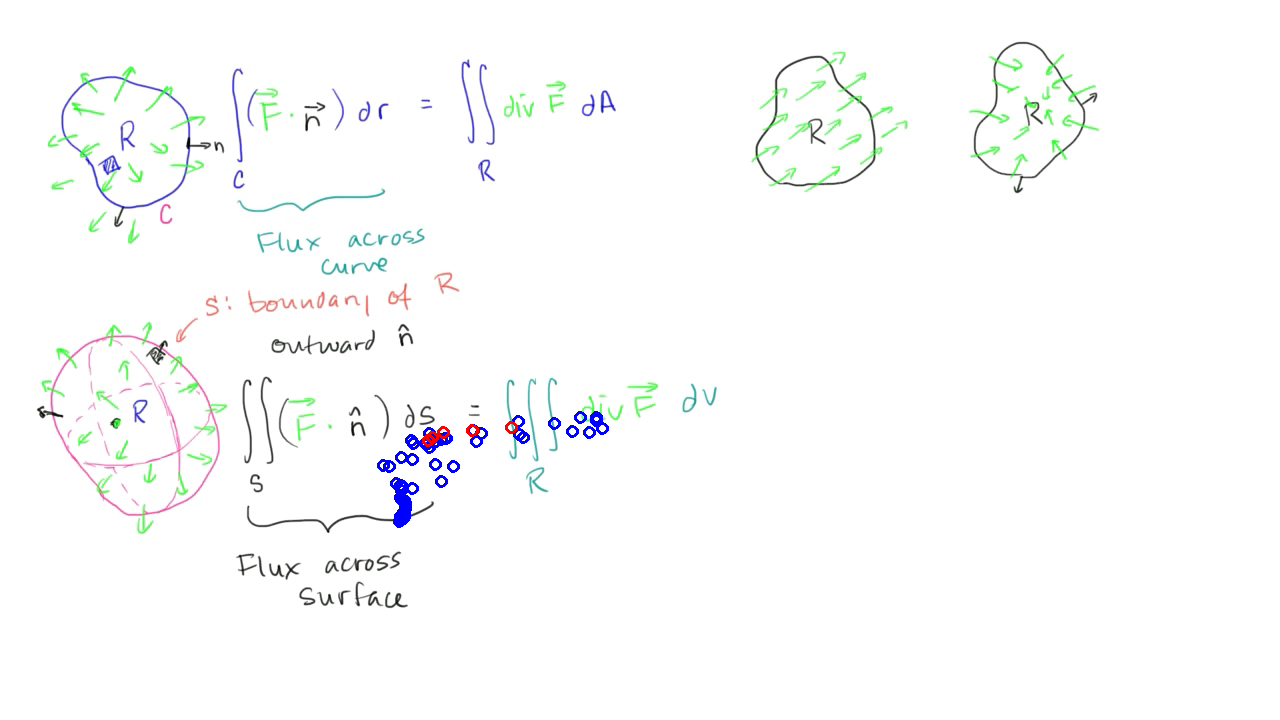 R
n
C
∫ (F⃗ · n⃗) dr = ∬ div F⃗ dA
C
R
Flux across
curve
R
R
S: boundary of R
outward n̂
R
∬ (F⃗ · n̂) dS = ∭ div F⃗ dV
S
R
Flux across
surface